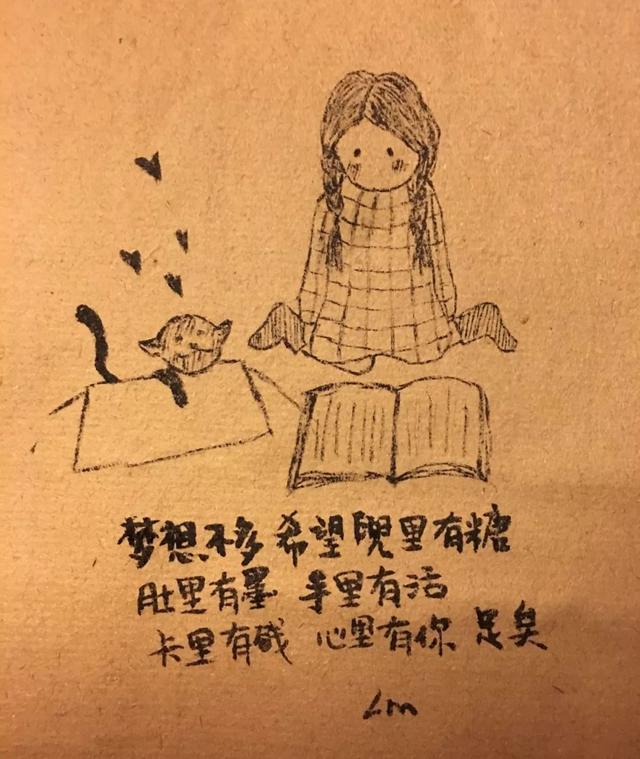 梦想不多 希望兜里有糖
肚里有墨 手里有活
卡里有钱 心里有你 足矣
Lm